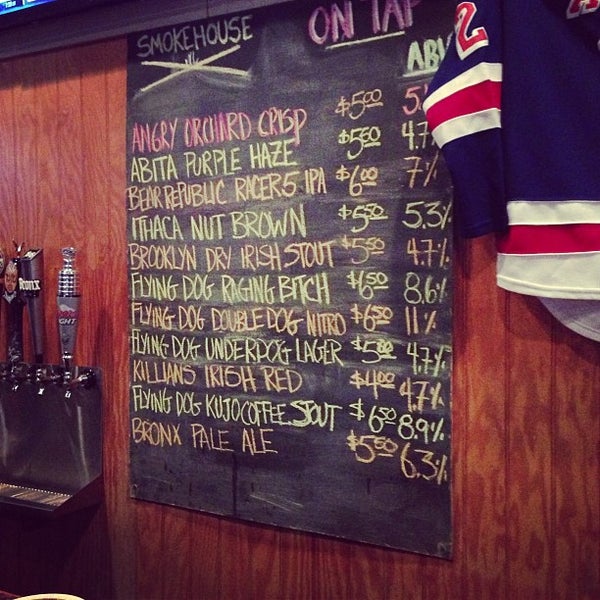 SMOKEHOUSE ON TAP
ABV
ANGRY ORCHARD CRISP $5.00
ABITA PURPLE HAZE $5.50 4.7%
BEAR REPUBLIC RACER 5 IPA $6.00 7%
ITHACA NUT BROWN $5.50 5.3%
BROOKLYN DRY IRISH STOUT $5.50 4.7%
FLYING DOG RAGING BITCH $6.50 8.6%
FLYING DOG DOUBLE DOG NITRO $6.50 11%
FLYING DOG UNDERDOG LAGER $5.00 4.7%
KILLIANS IRISH RED $4.00 4.7%
FLYING DOG KUJO COFFEE STOUT $6.50 8.9%
BRONX PALE ALE $5.50 6.3%
2
Bronx
LIGHT